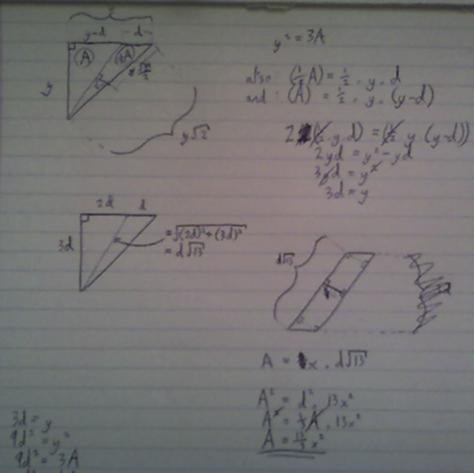 y
y-d
-d-
(A)
(½A)
y
y√2
y² = 3A
also (½A) = ½ . y . d
and (A) = ½ . y . (y-d)
2 (½ . y . d) = (½ y (y-d))
2yd = y² - yd
3yd = y²
3d = y
2d
d
3d
= √(2d)² + (3d)²
= d√13
d√13
A = x . d√13
A² = d² . 13x²
A² = ⅓A . 13x²
A = 13/3 x²
3d = y
9d² = y²
9d² = 3A